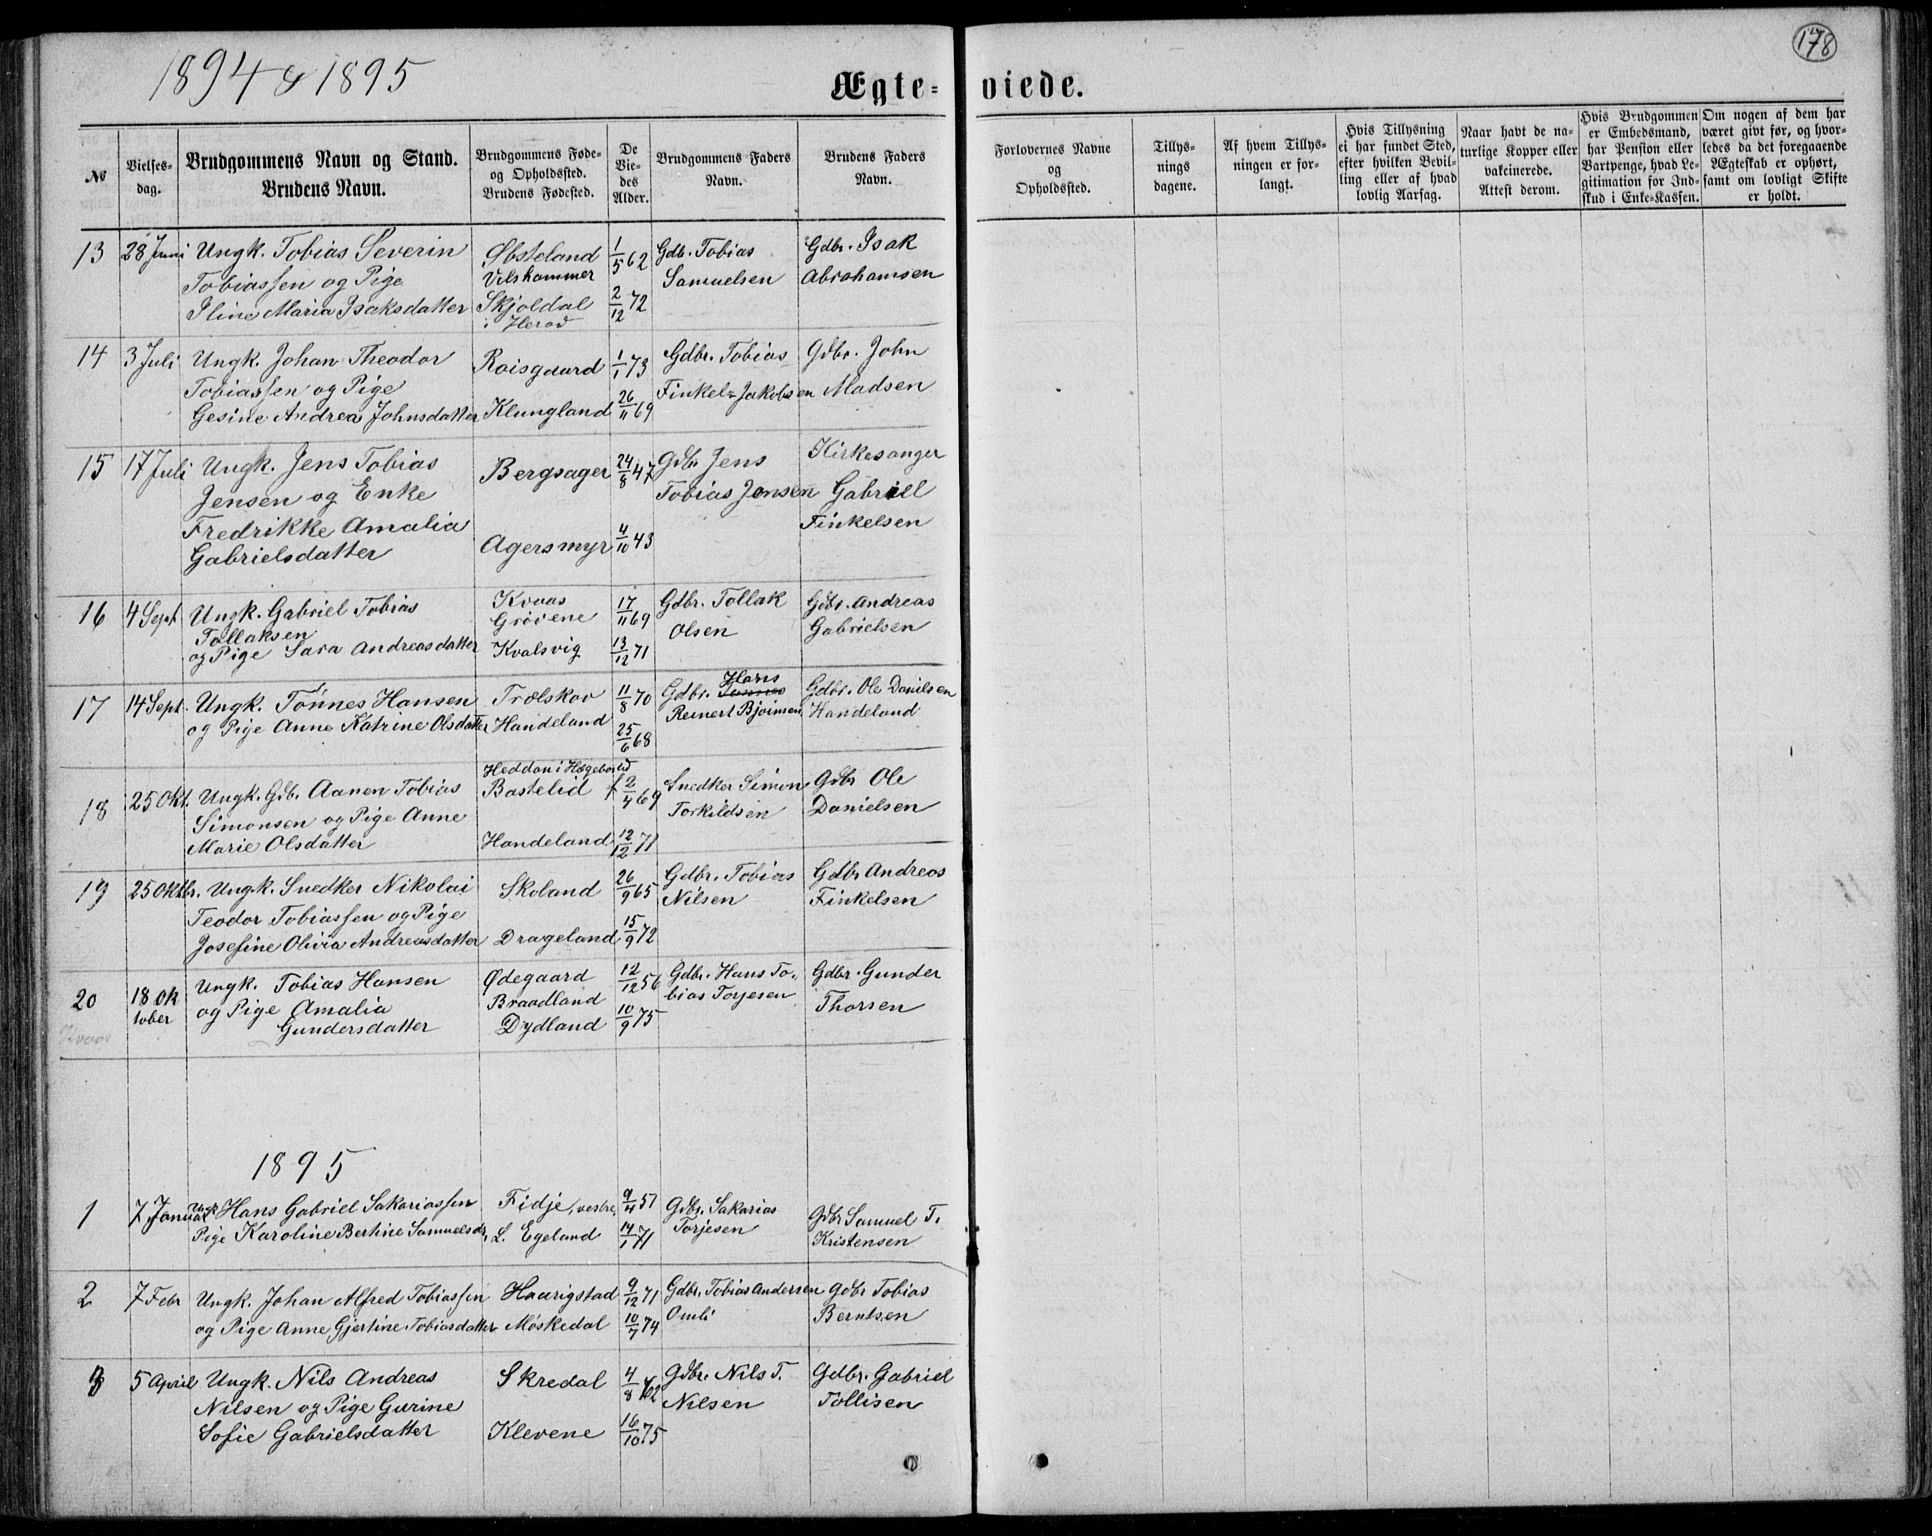 1894 & 1895
Ægte- viede.
178
No
Vielses-
dag.
Brudgommens Navn og Stand.
Brudens Navn.
Brudgommens Føde-
og Opholdssted.
Brudens Fødested.
De
Vie-
des
Alder.
Brudgommens Faders
Navn.
Brudens Faders
Navn.
Forlovernes Navne
og
Opholdssted.
Tillys-
nings
dagene.
Af hvem Tillys-
ningen er for-
langt.
Hvis Tillysning
ei har fundet Sted,
efter hvilken Bevil-
ling eller af hvad
lovlig Aarsag.
Naar havt de na-
turlige Kopper eller
vakcinerede.
Attest derom.
Hvis Brudgommen
er Embedsmand,
har Pension eller
Vartpenge, hvad Le-
gitimation for Ind-
skud i Enke-Kassen.
Om nogen af dem har
været givt før, og hvor-
ledes da det foregaaende
Ægteskab er ophørt,
samt om lovligt Skifte
er holdt.
13
28 Juni
Ungk. Tobias Severin
Tobiassen og Pige
Iline Maria Isaksdatter
Øbsteland
Vilshammer
Skjoldal
i Herad
1/5 62
2/12 72
Gdb. Tobias
Samuelsen
Gdbr. Isak
Abrahamsen
14
3 Juli
Ungk. Johan Theodor
Tobiassen og Pige
Gesine Andrea Johnsdatter
Roisgaard
Klungland
1/1 73
26/11 69
Gdbr. Tobias
Finkel Jakobsen
Gdbr. John
Madsen
15
17 Juli
Ungk. Jens Tobias
Jensen og Enke
Fredrikke Amalia
Gabrielsdatter
Bergsager
Agersmyr
24/8 47
4/10 43
Gdb Jens
Tobias Jensen
Kirkesanger
Gabriel
Finkelsen
16
4 Sept
Ungk. Gabriel Tobias
Tollaksen
og Pige Sara Andreasdatter
Kvaas
Grøvene
Kvalsvig
17/11 69
13/12 71
Gdbr. Tollak
Olsen
Gdbr. Andreas
Gabrielsen
17
14 Sept.
Ungk. Tönnes Hansen
og Pige Anne Katrine Olsdatter
Trælskov
Handeland
11/8 70
25/6 68
Hans
Gdbr. Tønnes
Reinert Bjoinsen
Gdbr. Ole Danielsen
Handeland
18
25 Okt.
Ungk. Gdb. Aanen Tobias
Simonsen og Pige Anne
Marie Olsdatter
Heddan i Hægebostd
Bastelid
Handeland
2/4 69
12/12 71
Snedker Simon
Torkildsen
Gdbr Ole
Danielsen
19
25 Oktbr.
Ungk. Snedker Nikolai
Teodor Tobiassen og Pige
Josefine Olivia Andreasdatter
Skoland
Drageland
26/9 65
15/9 72
Gdbr. Tobias
Nilsen
Gdbr Andreas
Finkelsen
20
Kvaas
18 Ok
tober
Ungk. Tobias Hansen
og Pige Amalia
Gundersdatter
Ødegaard
Braadland
Dydland
12/12 56
10/9 75
Gdbr. Hans To-
bias Torjesen
Gdbr. Gunder
Thorsen
1895
1
7 Januar
Ungk Hans Gabriel Sakariassen
Pige Karoline Bertine Samuelsdr,
Fidje, vestre,
L. Egeland
9/4 57
14/1 71
Gdbr. Sakarias
Torjesen
Gdbr Samuel T.
Kristensen
2
7 Febr
Ungk. Johan Alfred Tobiassen
og Pige Anne Gjertine Tobiasdatter
Haarigstad
Møskedal
9/12 71
10/7 74
Gdbr. Tobias Andersen
Omli
Gdbr Tobias
Berntsen
3
5 April
Ungk. Nils Andreas
Nilsen og Pige Gurine
Sofie Gabrielsdatter
Skredal
Klevene
4/8 62
16/10 75
Gdbr. Nils T.
Nilsen
Gdbr. Gabriel
Tollisen